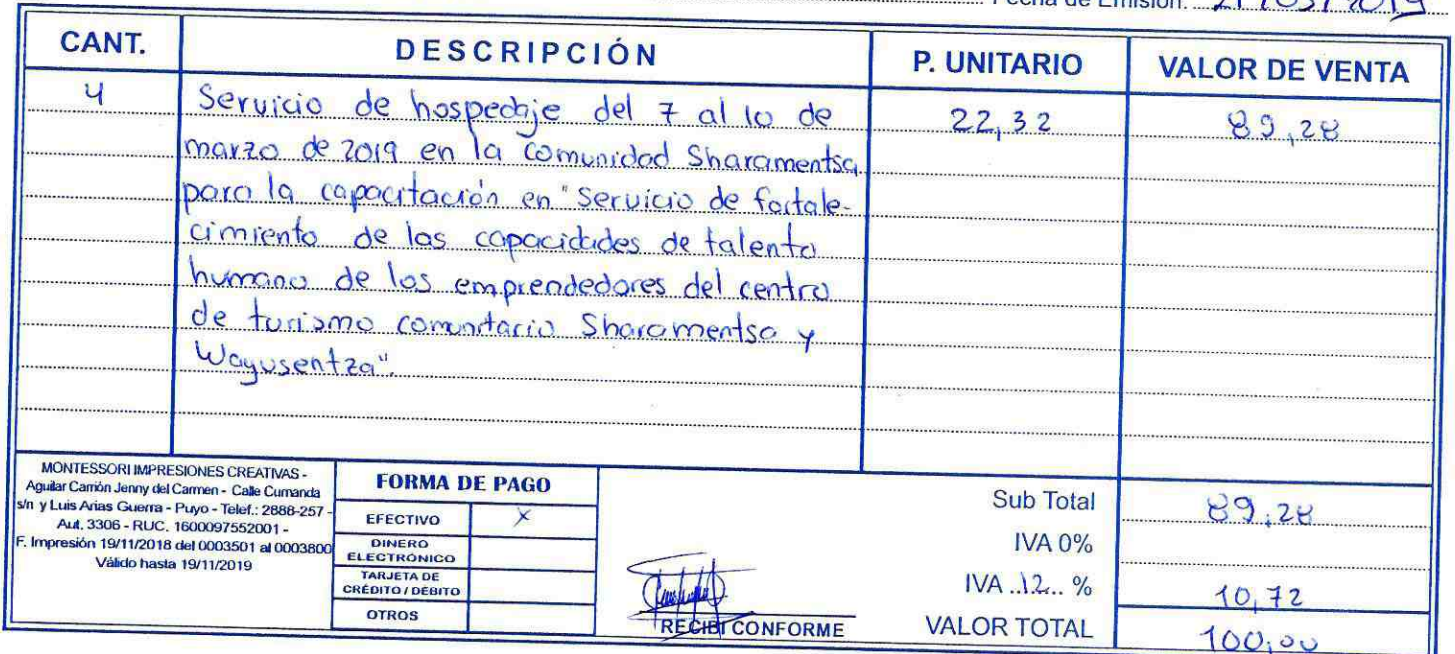 Fecha de Emisión:
CANT. DESCRIPCIÓN P. UNITARIO VALOR DE VENTA
4 Servicio de hospedaje del 7 al 10 de 22,32 89,28
marzo de 2019 en la comunidad Sharamentsa
para la capacitación en "Servicio de fortale-
cimiento de las capacidades de talento
humano de los emprendedores del centro
de turismo comunitario Sharamentsa y
Wayusentza".
MONTESSORI IMPRESIONES CREATIVAS -
Aguilar Carrión Jenny del Carmen - Calle Cumanda
s/n y Luis Arias Guerra - Puyo - Telef.: 2888-257 -
Aut. 3306 - RUC. 1600097552001 -
F. Impresión 19/11/2018 del 0003501 al 0003800
Válido hasta 19/11/2019
FORMA DE PAGO
EFECTIVO X
DINERO
ELECTRÓNICO
TARJETA DE
CRÉDITO / DÉBITO
OTROS
RECIBI CONFORME
Sub Total 89,28
IVA 0%
IVA 12 % 10,72
VALOR TOTAL 100,00